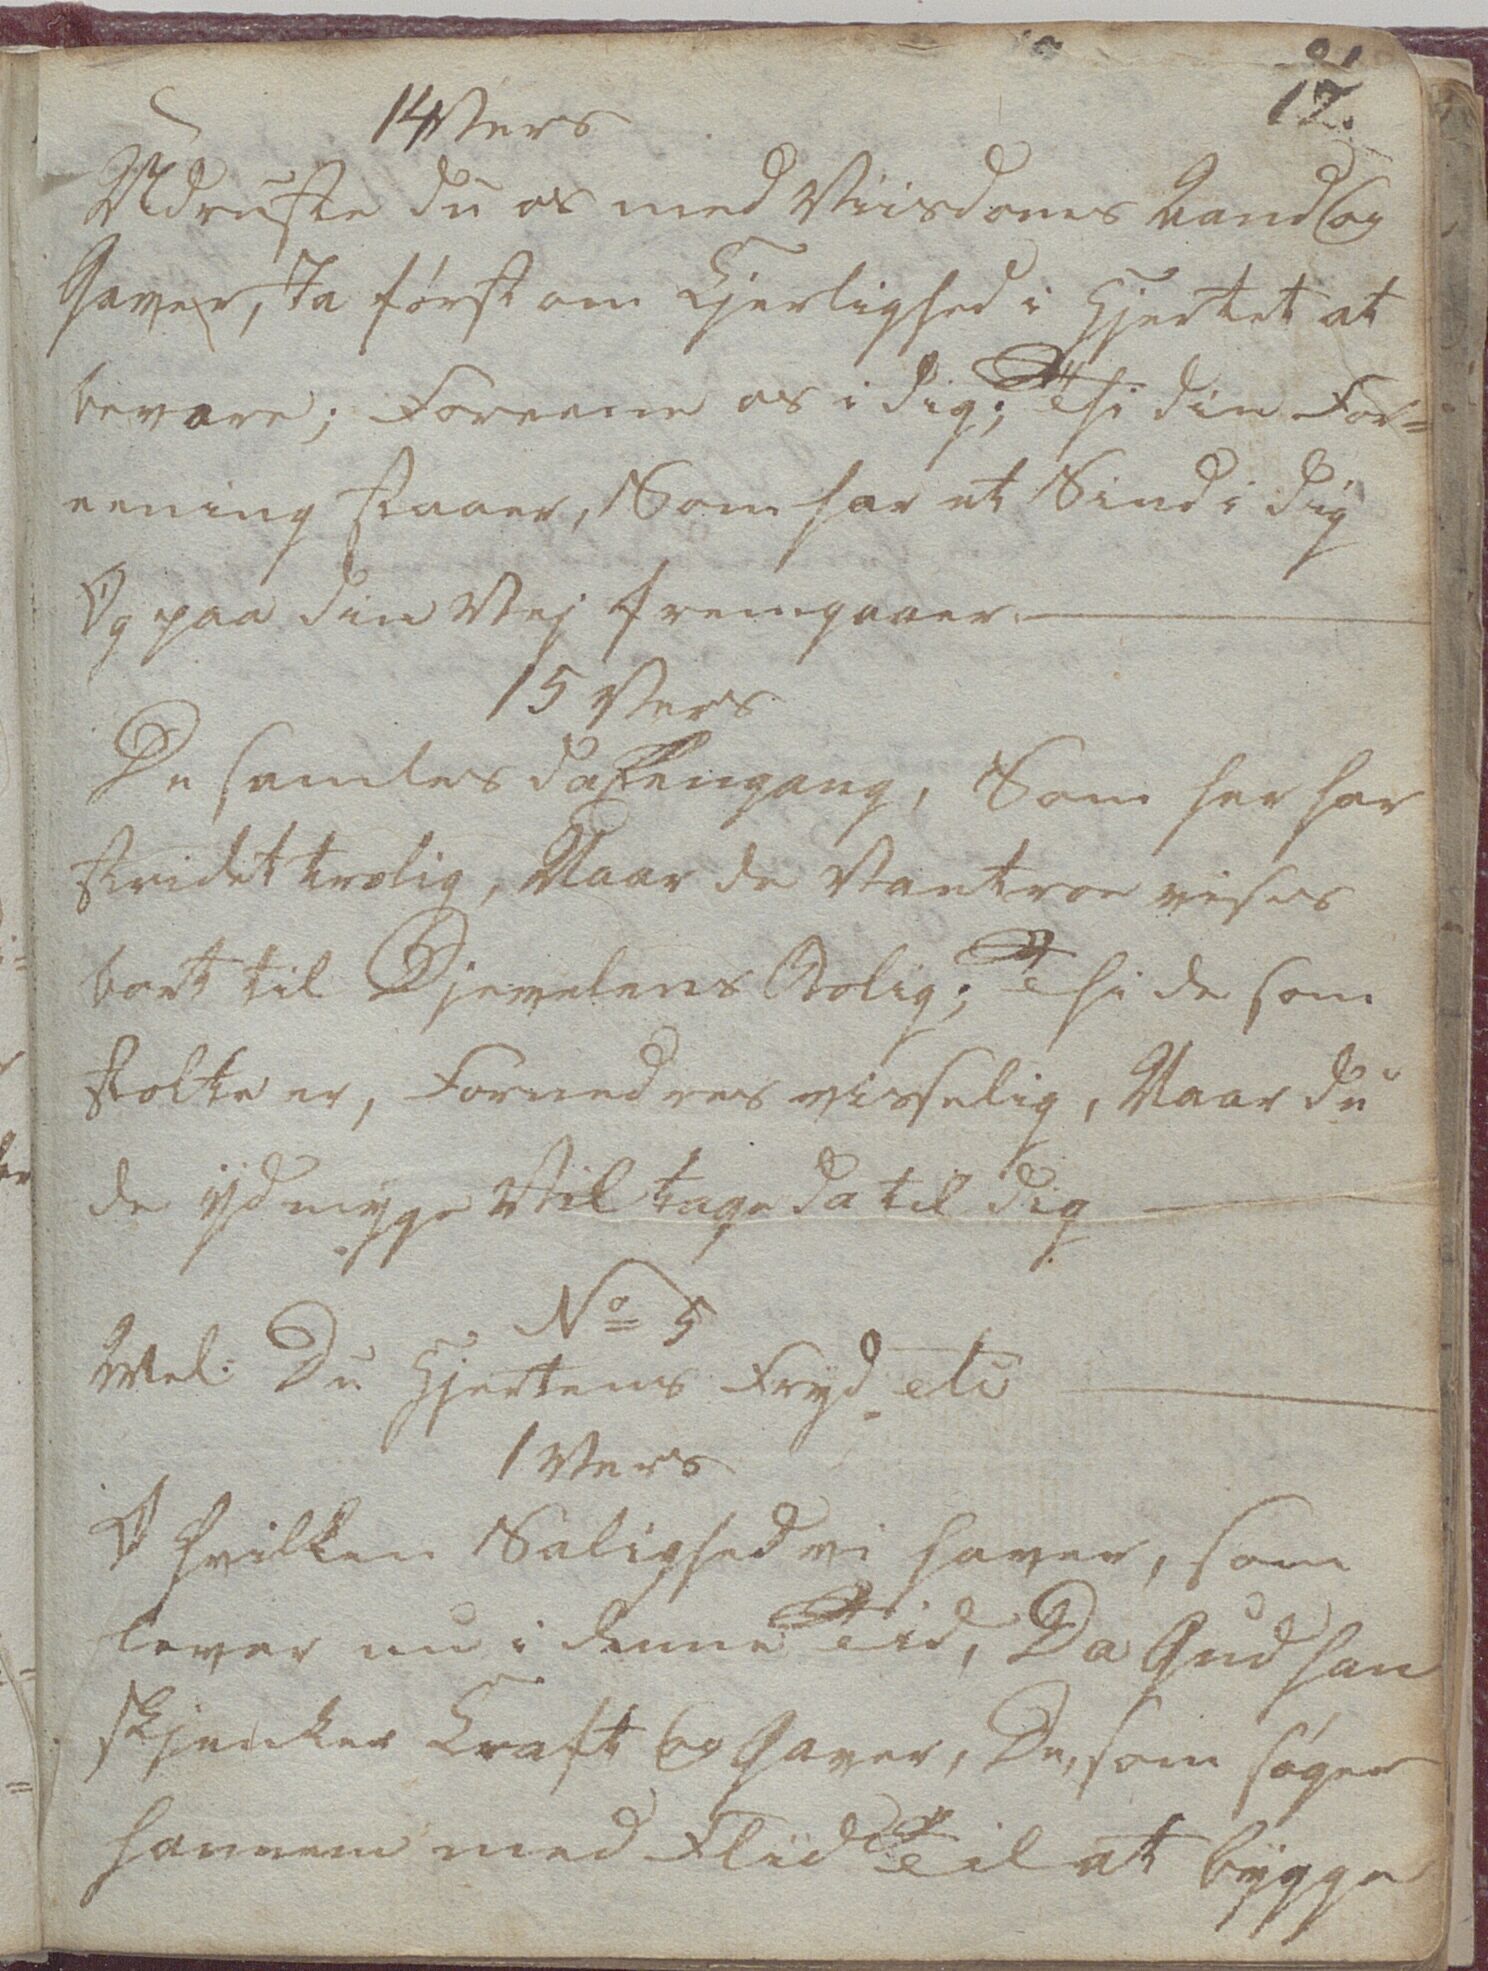 12.
14 Vers
Udruste du os med Viisdoms Aand og
Gaver, Ja først om Kjerlighed i Hjertet at
bevare; Foreene os i dig; Thi din For=
eening staaer, Som har et Sind i dig
Og paa din Vej fremgaaer.
15 Vers
De samles da engang, Som her har
stridet trolig, Naar de Vantroe vises
bort til Djevelens Bolig; Thi de som
stolte er, Fornedres visselig, Naar du
de ydmyge Vil tage da til dig
No 5
Mel: Du Hjertens Fryd etc
1 Vers
O hvilken Salighed vi haver, som
lever nu i denne Tid, Da Gud han
skjenker Kraft og Gaver, De, som søger
hannem med Fliid Til at bygge